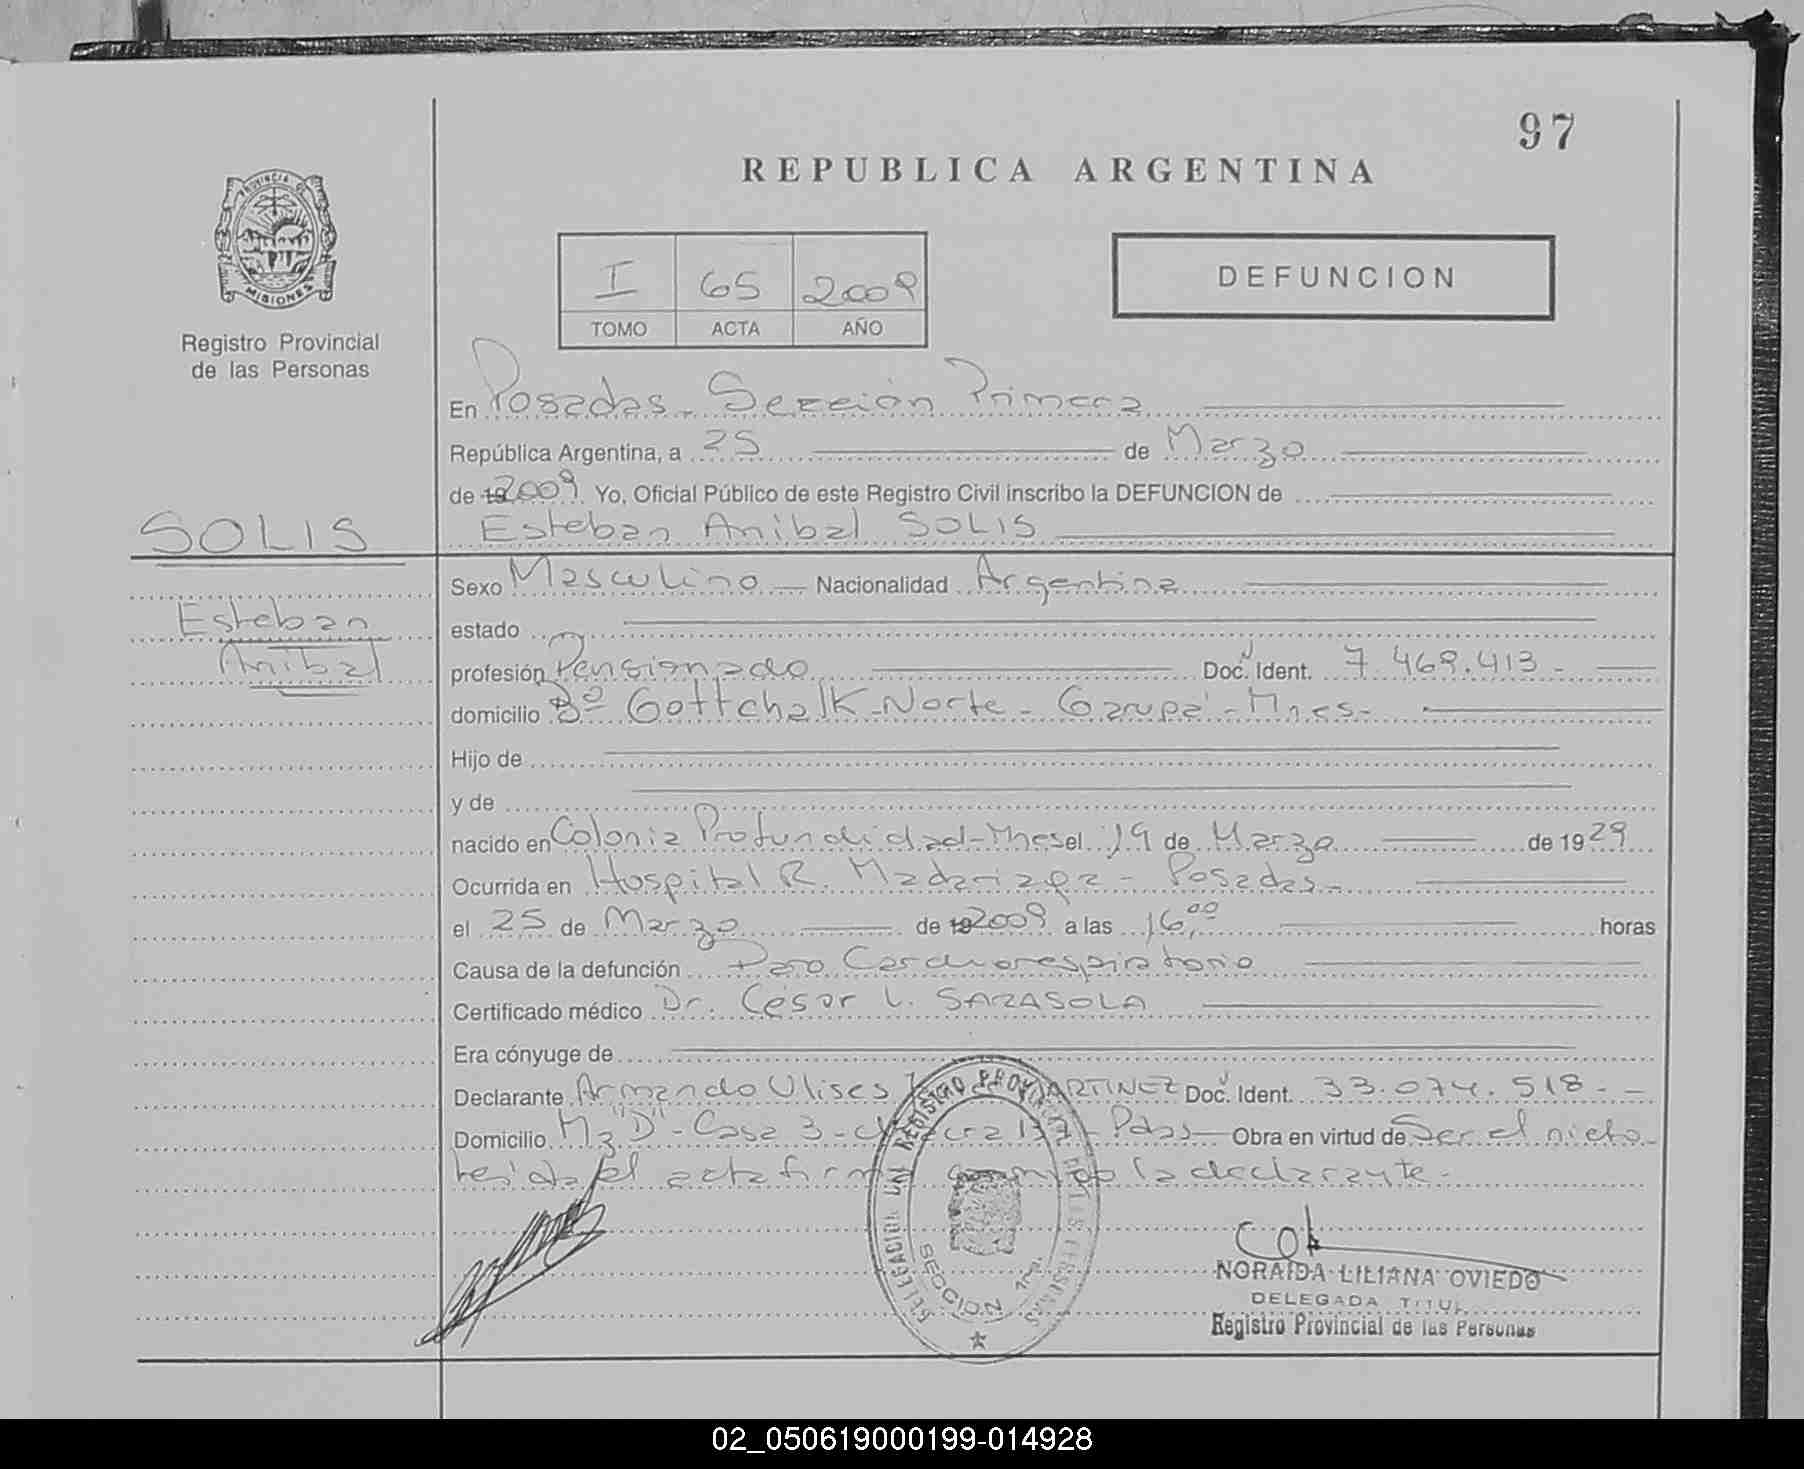 97
REPUBLICA ARGENTINA
PROVINCIA DE
MISIONES
Registro Provincial
de las Personas
I 65 2009
TOMO ACTA AÑO
DEFUNCION
En Posadas. Sección Primera
República Argentina, a 25 de Marzo
de 19 2009 Yo, Oficial Público de este Registro Civil inscribo la DEFUNCION de
SOLIS Esteban Anibal SOLIS
Sexo Masculino Nacionalidad Argentina
Esteban
estado
Anibal
profesión Pensionado Doc. Ident. 7.469.413.-
domicilio Bº Gottchalk-Norte-Garupá-Mnes-
Hijo de
y de
nacido en Colonia Profundidad-Mnes el 19 de Marzo de 1929
Ocurrida en Hospital R. Madariaga - Posadas-
el 25 de Marzo de 19 2009 a las 16,00 horas
Causa de la defunción Paro Cardiorespiratorio
Certificado médico Dr. César L. SARASOLA
Era cónyuge de
Declarante Armando Ulises MARTINEZ Doc. Ident. 33.074.518.-
Domicilio Mz "D"-Casa 3-chacra 137-Pdas- Obra en virtud de Ser el nieto
el acta firma la declarante.-
DELEGACION REGISTRO PROVINCIAL DE LAS PERSONAS
SECCION 1ra.
NORAIDA LILIANA OVIEDO
DELEGADA TITUL
Registro Provincial de las Personas
02_050619000199-014928